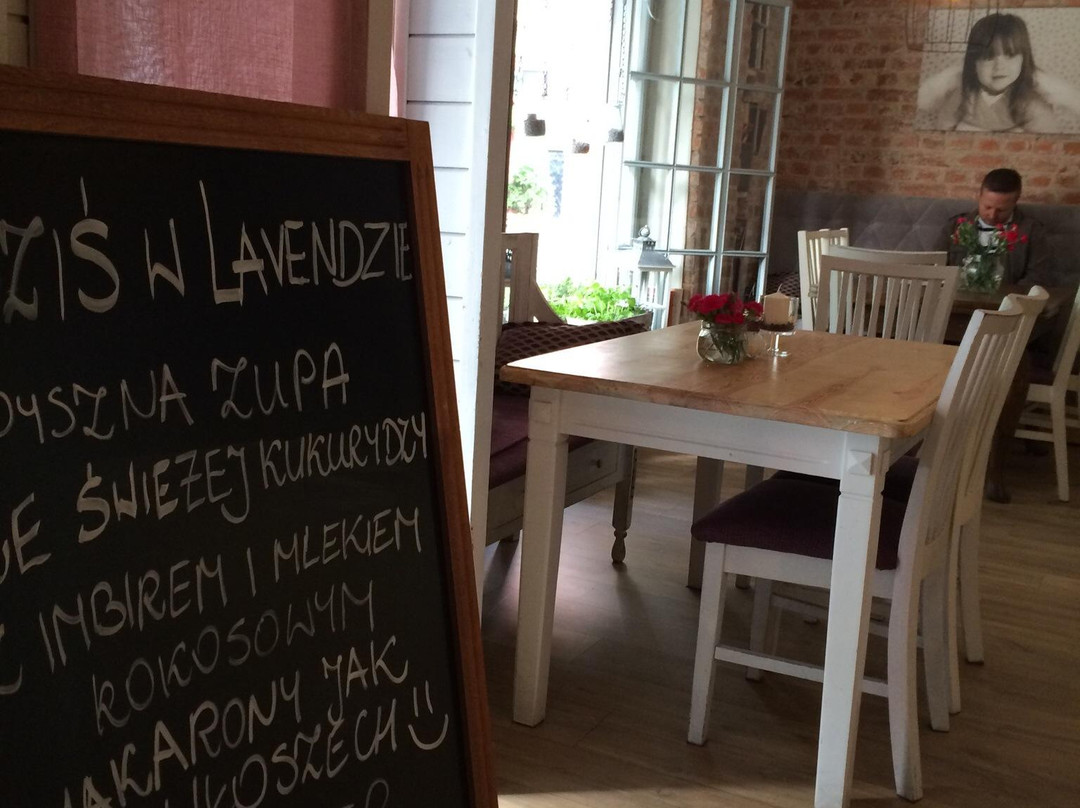 ZIŚ W LAVENDZIE
PYSZNA ZUPA
ZE ŚWIEŻEJ KUKURYDZY
Z IMBIREM I MLEKIEM
KOKOSOWYM
MAKARONY JAK
WŁOSZECH :)